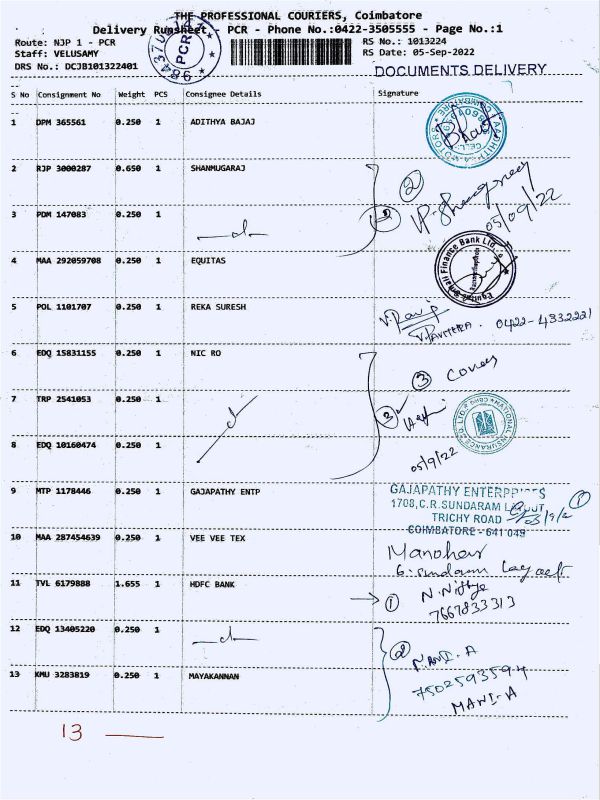 THE PROFESSIONAL COURIERS, Coimbatore
Delivery Runsheet - PCR - Phone No.:0422-3505555 - Page No.:1
Route: NJP 1 - PCR
RS No.: 1013224
Staff: VELUSAMY
RS Date: 05-Sep-2022
DRS No.: DCJB101322401
DOCUMENTS DELIVERY
PCR
S No Consignment No Weight PCS Consignee Details Signature
1 DPM 365561 0.250 1 ADITHYA BAJAJ
2 RJP 3000287 0.650 1 SHANMUGARAJ
2
05/09/22
3 PDM 147083 0.250 1
4 MAA 292059708 0.250 1 EQUITAS
Equitas Small Finance Bank Ltd
5 POL 1101707 0.250 1 REKA SURESH
V. PAVITHRA. 0422-4332221
6 EDQ 15831155 0.250 1 NIC RO
3
7 TRP 2541053 0.250 1
3
8 EDQ 10160474 0.250 1
05/9/22
9 MTP 1178446 0.250 1 GAJAPATHY ENTP
GAJAPATHY ENTERPRISES
1
1708,C.R.SUNDARAM LAYOUT
TRICHY ROAD
COIMBATORE - 641 045
10 MAA 287454639 0.250 1 VEE VEE TEX
Manohar
6. Sundaram Layout
11 TVL 6179888 1.655 1 HDFC BANK
1 N. Nithya
7667833313
12 EDQ 13405220 0.250 1
2 MANI. A
7502593594
13 KMU 3283819 0.250 1 MAYAKANNAN
MANI-A
13